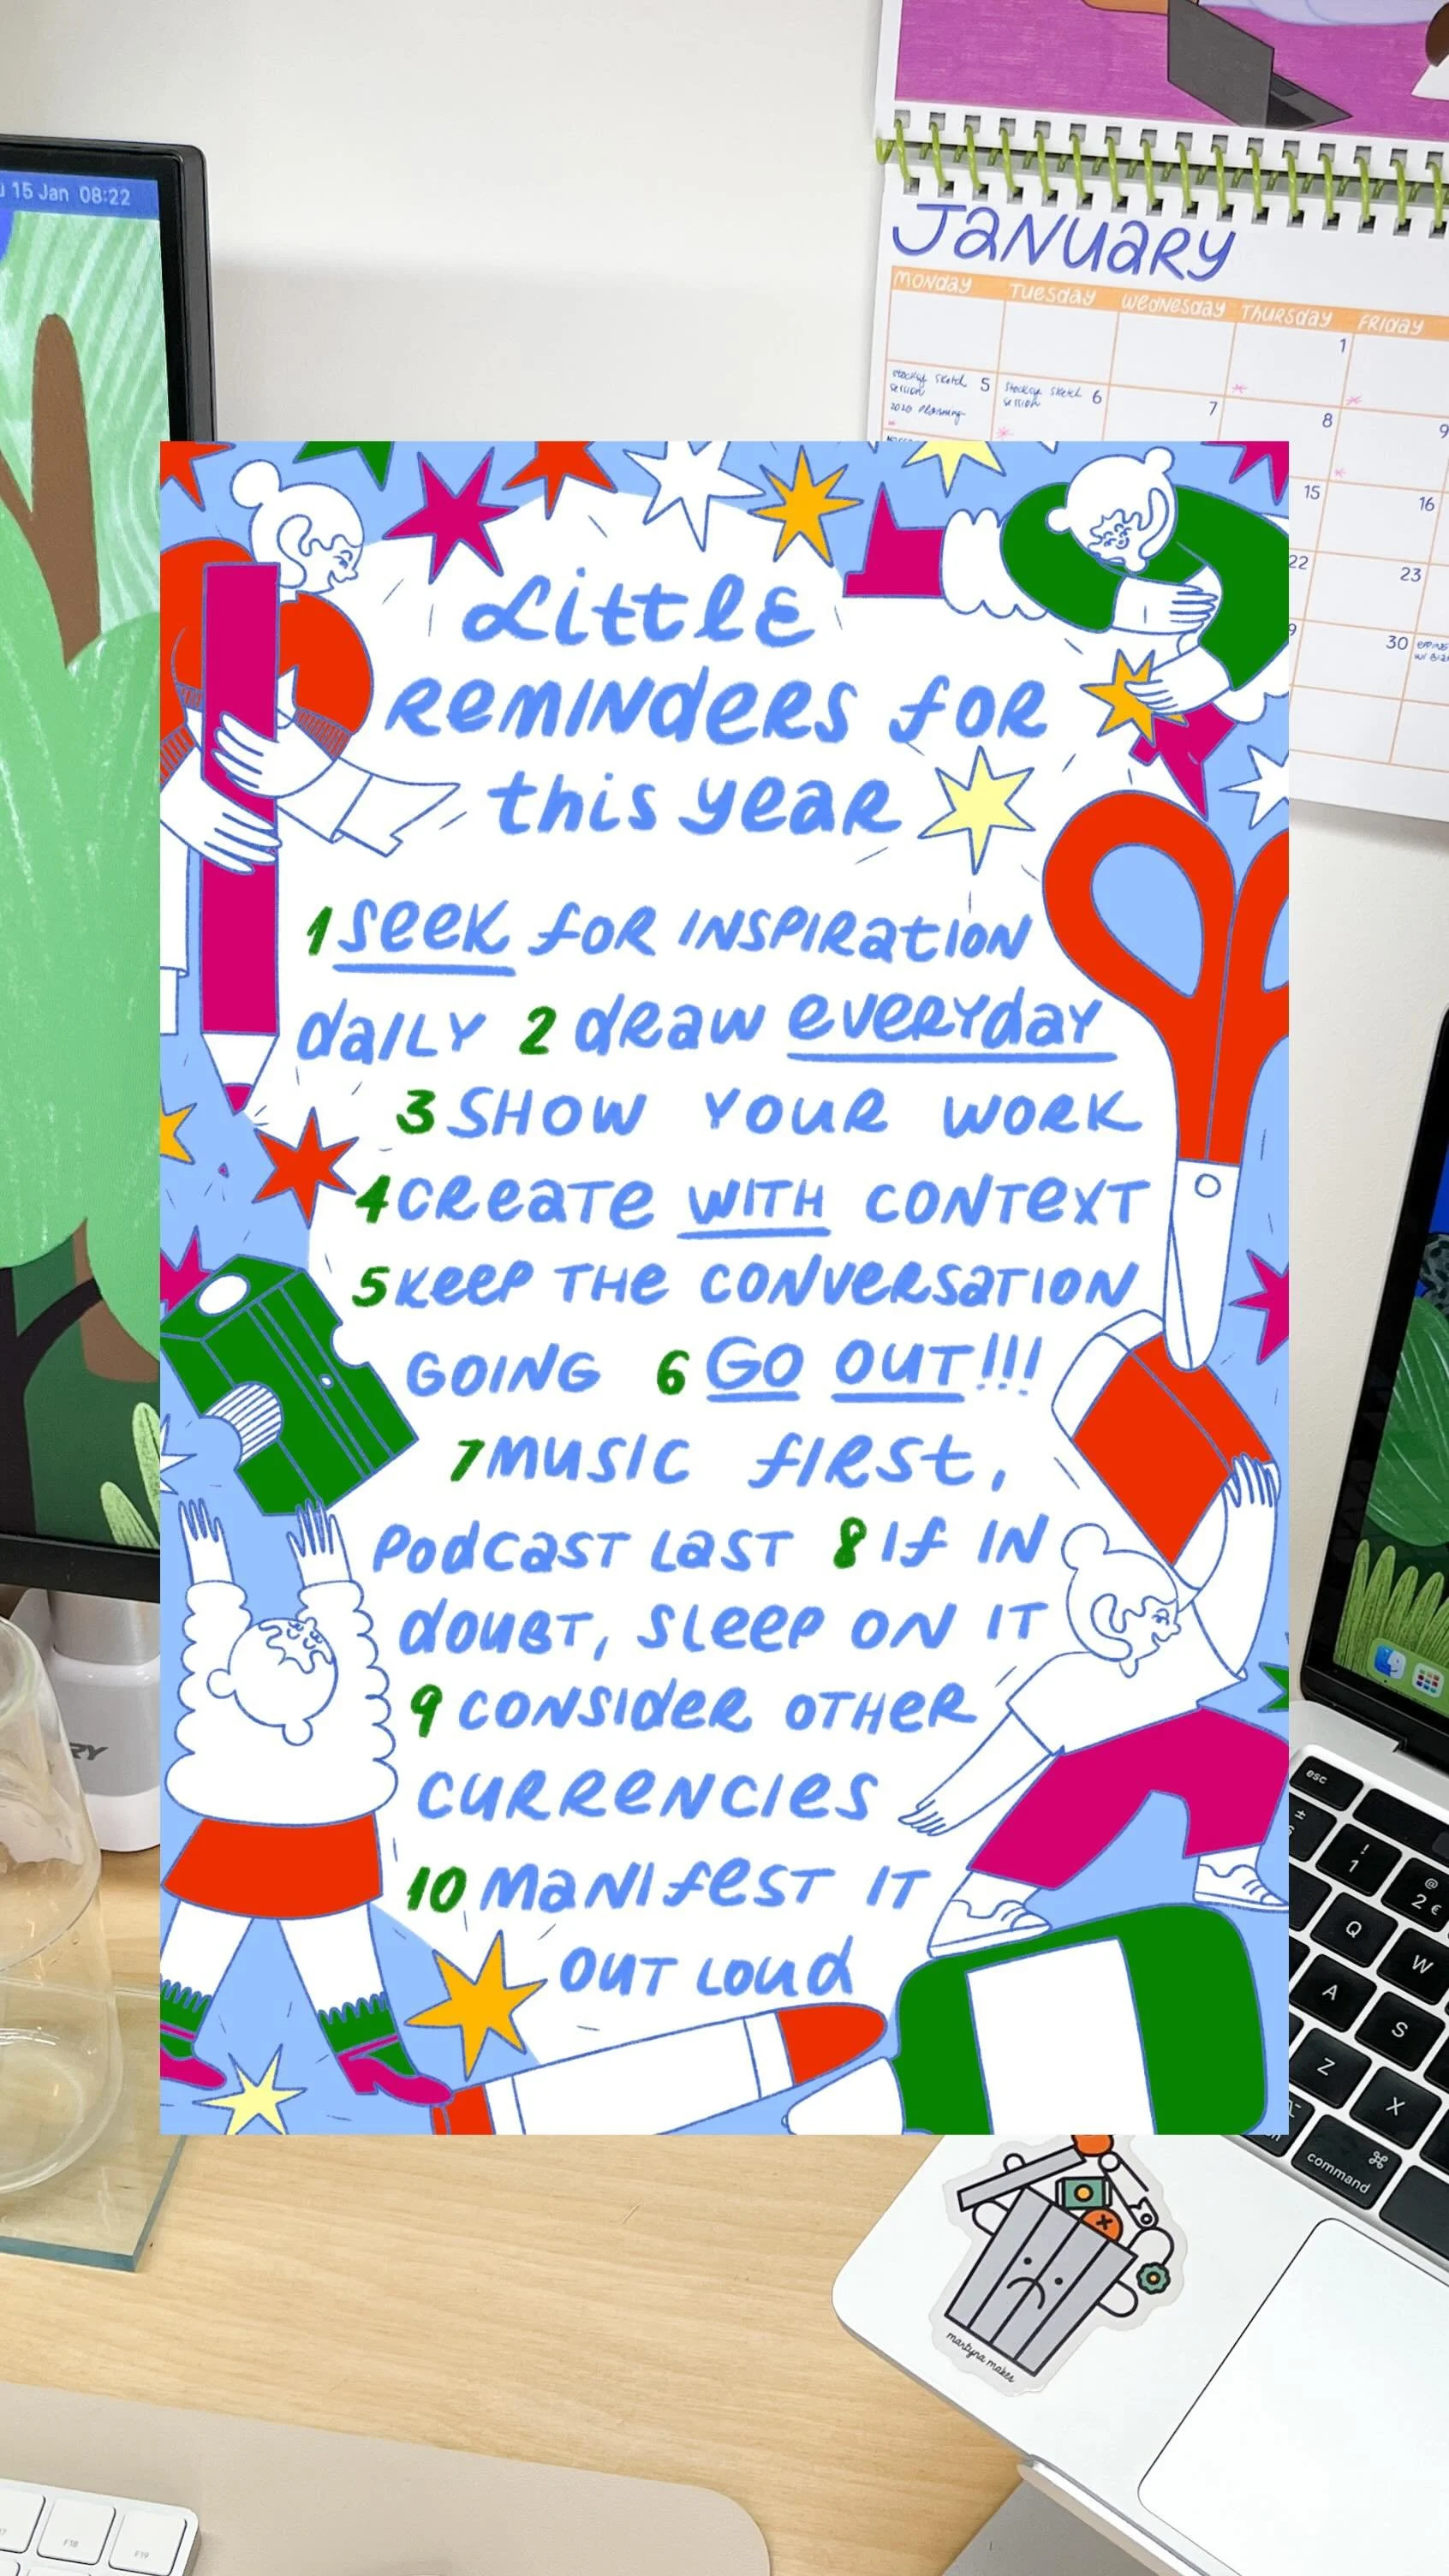 15 Jan 08:22
JANUARY
MONDAY TUESDAY WEDNESDAY THURSDAY FRIDAY
1
sketch session 5
sketch session 6
7
8
9
planning
15
16
22
23
30
Little
REMINDERS FOR
this year
1 SEEK FOR INSPIRATION
DAILY 2 DRAW EVERYDAY
3 SHOW YOUR WORK
4 CREATE WITH CONTEXT
5 KEEP THE CONVERSATION
GOING 6 GO OUT!!!
7 MUSIC FIRST,
PODCAST LAST 8 IF IN
DOUBT, SLEEP ON IT
9 CONSIDER OTHER
CURRENCIES
10 MANIFEST IT
OUT LOUD
esc
±
! 1
@ 2 €
Q
W
A
S
Z
X
⌘
command
martyna makes
F18
F19